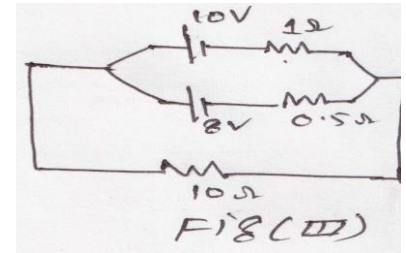 10V 1Ω
8V 0.5Ω
10Ω
Fig(III)